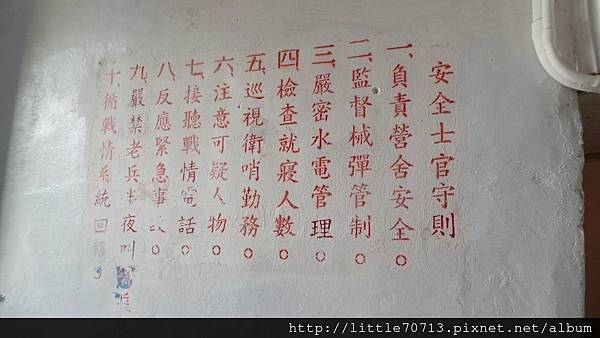 安全士官守則
一、負責營舍安全。
二、監督械彈管制。
三、嚴密水電管理。
四、檢查就寢人數。
五、巡視衛哨勤務。
六、注意可疑人物。
七、接聽戰情電話。
八、反應緊急事 。
九、嚴禁老兵半夜叫 兵
十、循戰情系統回報。
http://little70713.pixnet.net/album